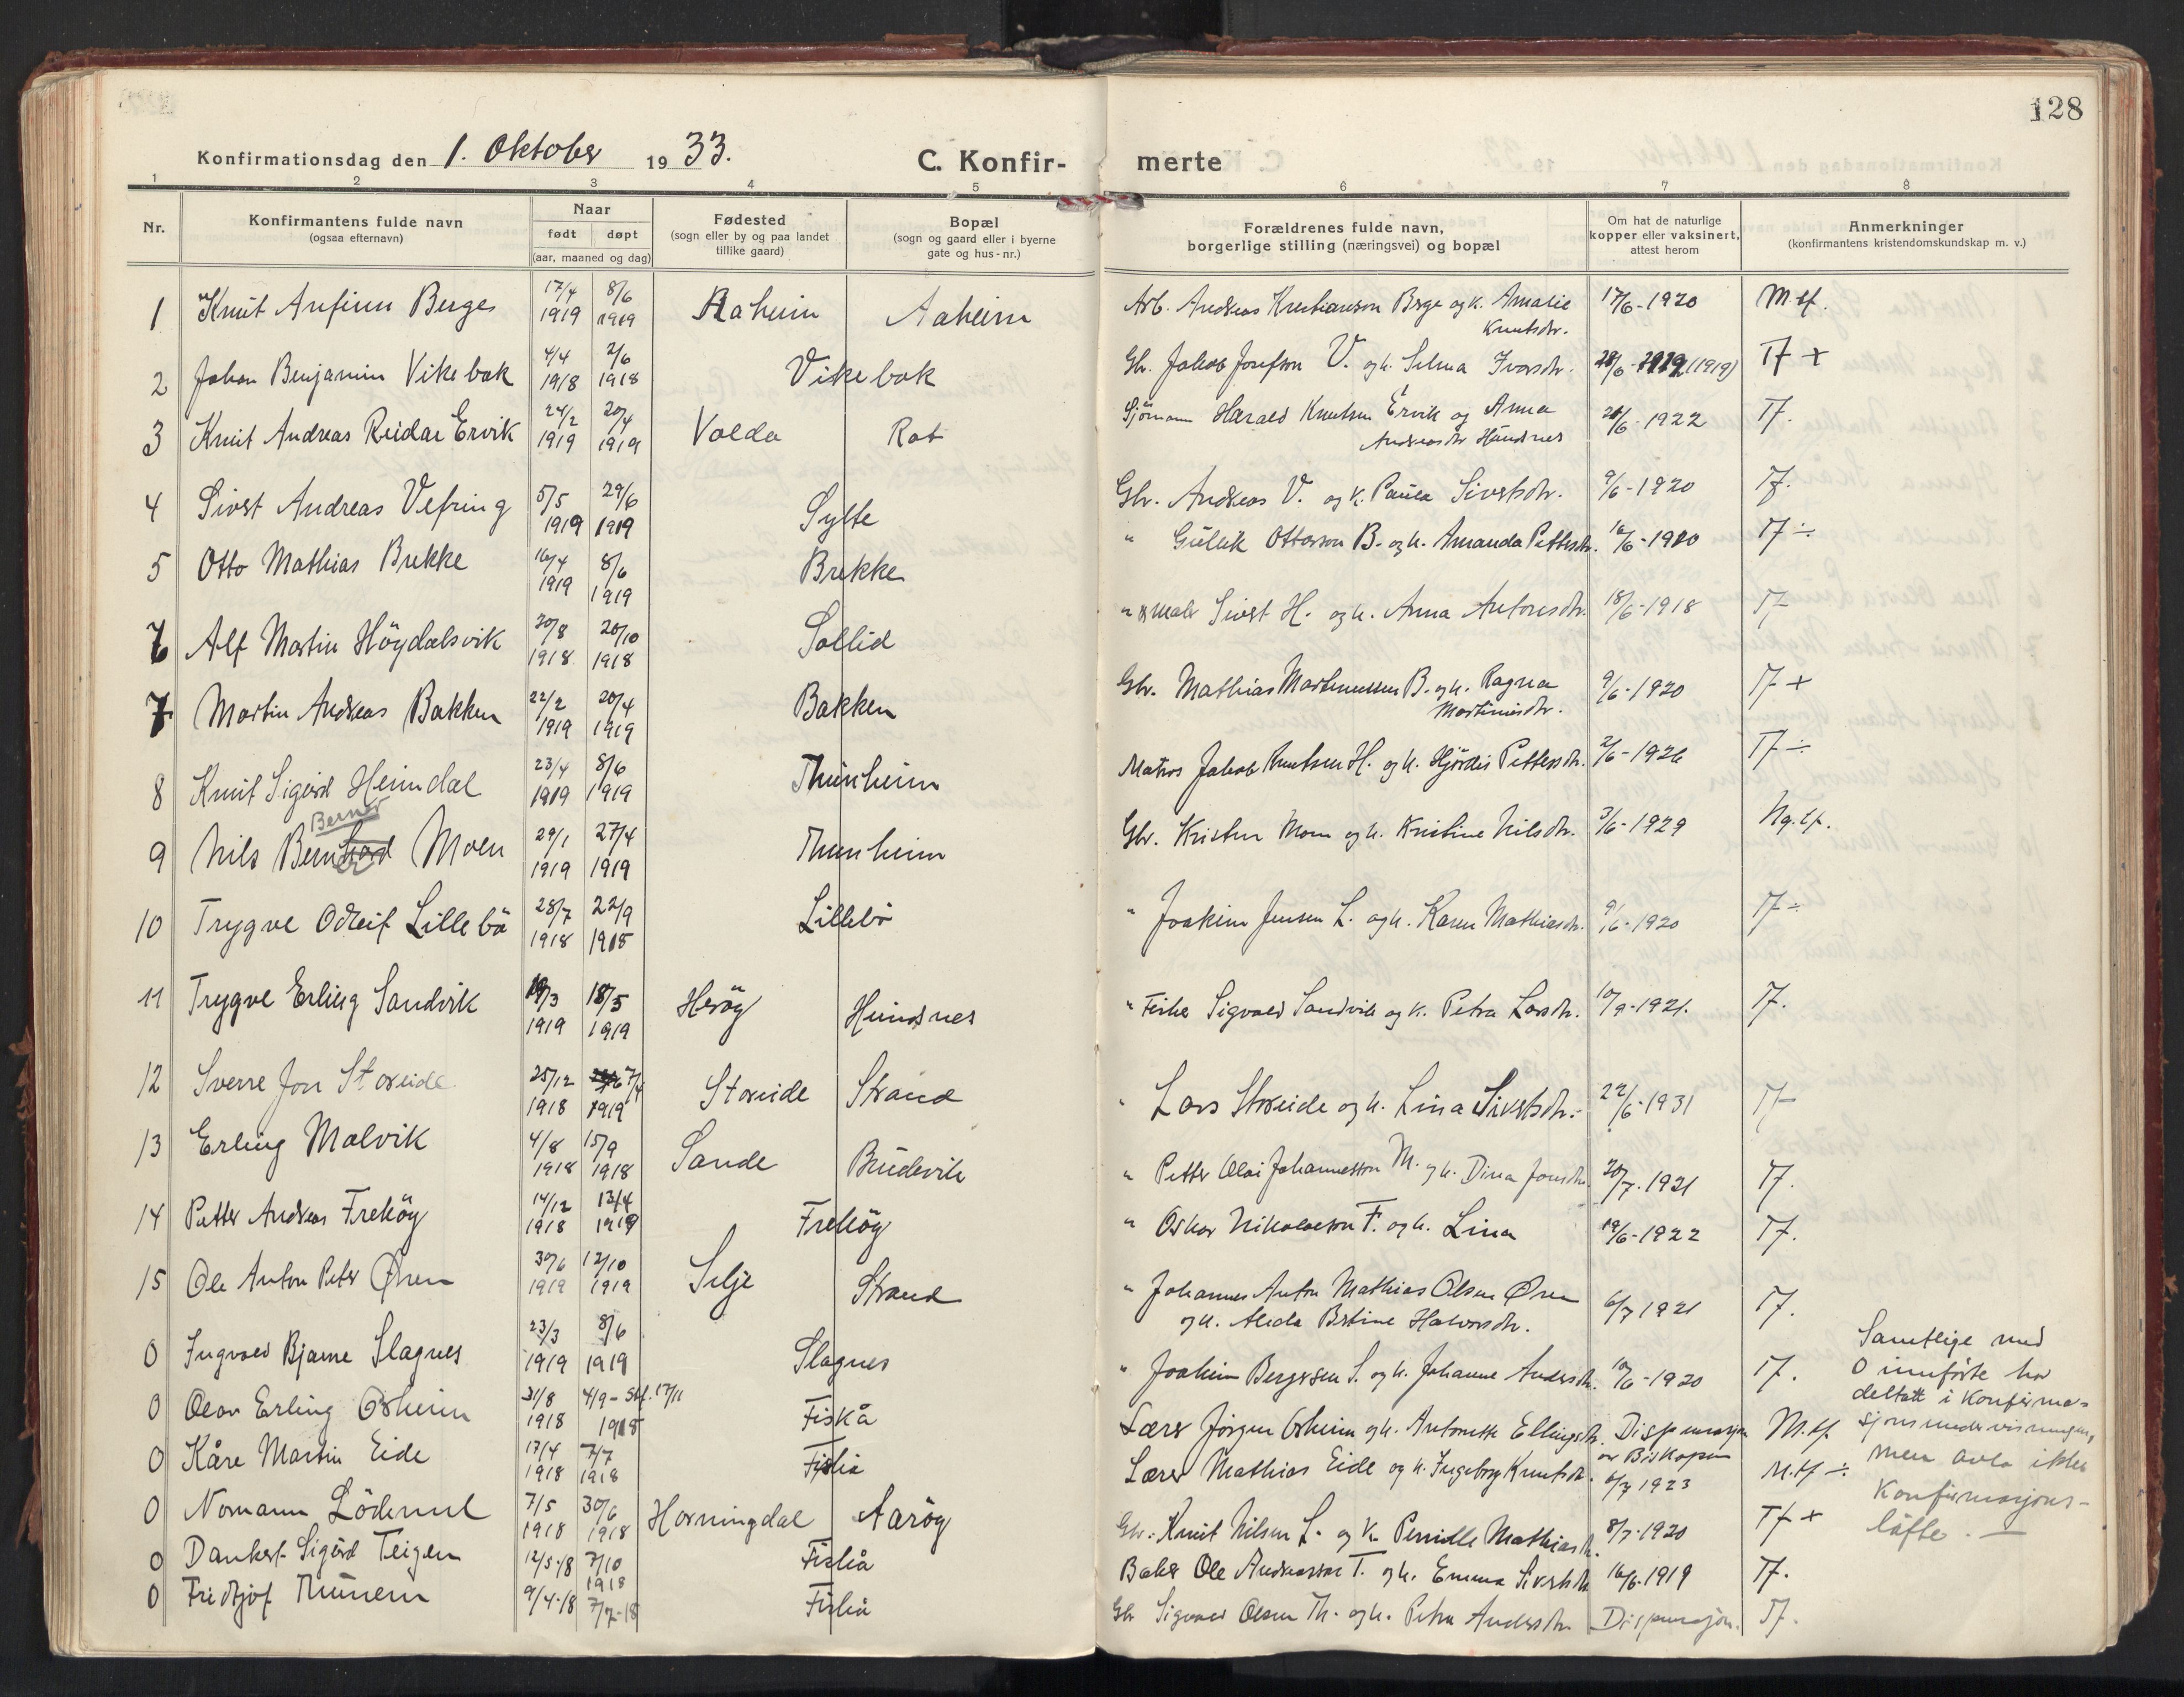 128
Konfirmationsdag den 1. Oktober 1933.
C. Konfir- merte
1 2 3 4 5 6 7 8
Nr.
Konfirmantens fulde navn
(ogsaa efternavn)
Naar
født døpt
(aar, maaned og dag)
Fødested
(sogn eller by og paa landet
tillike gaard)
Bopæl
(sogn og gaard eller i byerne
gate og hus-nr.)
Forældrenes fulde navn,
borgerlige stilling (næringsvei) og bopæl
Om hat de naturlige
kopper eller vaksinert,
attest herom
Anmerkninger
(konfirmantens kristendomskundskap m. v.)
1 Knut Arnfinn Berge 17/4 1919 8/6 1919 Aaheim Aaheim Arb. Andreas Kristiansen Berge og k. Amalie 17/6-1920 M.tf.
Knutsdtr.
2 Johan Benjamin Vikebak 4/4 1918 2/6 1918 Vikebak Gbr. Jakob Josefson V. og k. Selma Ivarsdtr. (1919) Tf +
3 Knut Andreas Reidar Ervik 24/2 1919 20/4 1919 Volda Rot Sjömann Harald Knutsen Ervik og Anna /6-1922 Tf.
Andreasdtr
4 Sivert Andreas Vefring 5/5 1919 29/6 1919 Sylte Gbr. Andreas V. og k. Paula Sivertsdtr. 9/6-1920 Tf.
5 Otto Mathias Brekke 16/4 1919 8/6 1919 Brekke " Gullik Ottoson B. og k. Amanda Pettersdtr. 16/6-1920 Tf ÷
6 Alf Martin Högdalsvik 20/8 1918 20/10 1918 Sollid " Sivert H. og k. Anna Antonsdtr. 18/6-1918 Tf
7 Martin Andreas Bakken 22/2 1919 20/4 1919 Bakken Gbr. Mathias Martinussen B. og k. Ragna 9/6-1920 Tf +
Martinusdtr.
8 Knut Sigurd Heimdal 23/4 1919 8/6 1919 Thunheim Matros Jakob Knutsen H. og k. Hjördis Pettersdtr. 2/6-1926 Tf ÷
Berner
9 Nils Bernhard Moen 29/1 1919 27/4 1919 Thunheim Gbr. Kristen Moen og k. Kristine Nilsdtr. 3/6-1929 Ng.tf.
10 Trygve Odleif Lillebö 28/7 1918 22/9 1918 Lillebö " Joakim Jensen L. og k. Karen Mathiasdtr. 9/6-1920 Tf ÷
11 Trygve Erling Sandvik 19/3 1919 18/5 1919 Heröy Hundsnes " Fisker Sigvald Sandvik og k. Petra Larsdtr. 10/9-1921. Tf.
12 Sverre Jon Storeide 25/12 1918 7/4 1919 Storeide Strand " Lars Storeide og k. Lina Sivertsdtr. 22/6-1931 Tf
13 Erling Malvik 4/8 1918 15/9 1918 Sande Brudevik " Petter Olai Johannesson M. og k. Dina Jonsdtr. 20/7-1921 Tf.
14 Petter Andreas Freköy 14/12 1918 13/4 1919 Freköy " Oskar Nikolaison F. og k. Lina 19/6-1922 Tf.
15 Ole Anton Peter Øren 30/6 1919 12/10 1919 Selje Strand " Johannes Anton Mathias Olsen Øren 6/7 1921 Tf.
og k. Alida Bertine Halvorsdtr.
0 Ingvald Bjarne Slagnes 23/3 1919 8/6 1919 Slagnes " Joakim Bergesen S. og k. Johanne Andersdtr. 10/6-1920 Tf.
0 Olav Erling Osheim 31/8 1918 4/9 - Stf. 17/11 1918 Fiskå Lærer Jörgen Osheim og k. Antonette Ellingsdtr. Dispensasjon M.tf.
av Biskopen
0 Kåre Martin Eide 17/4 1918 7/7 1918 Fiskå Lærer Mathias Eide og k. Ingeborg Knutsdtr. 6/7 1923 M.tf ÷
0 Nomann Lödemel 7/5 1918 30/6 1918 Horningdal Aaröy Gbr. Knut Nilsen L. og k. Pernille Mathiasdtr. 8/7-1920 Tf +
0 Dankert Sigurd Teigen 12/5-18 7/10 1918 Fiskå Baker Ole Andreassen T. og k. Emma Sivertsdtr 16/6-1919 Tf.
0 Fridtjof Thunem 9/4-18 7/7-18 Fiskå Gbr Sigvald Olsen Th. og k. Petra Andersdtr. Dispensasjon. Tf.
Samtlige med
0 innförte har
deltatt i Konfirma-
sjonsundervisningen,
men avla ikke
Konfirmasjons-
löfte. —